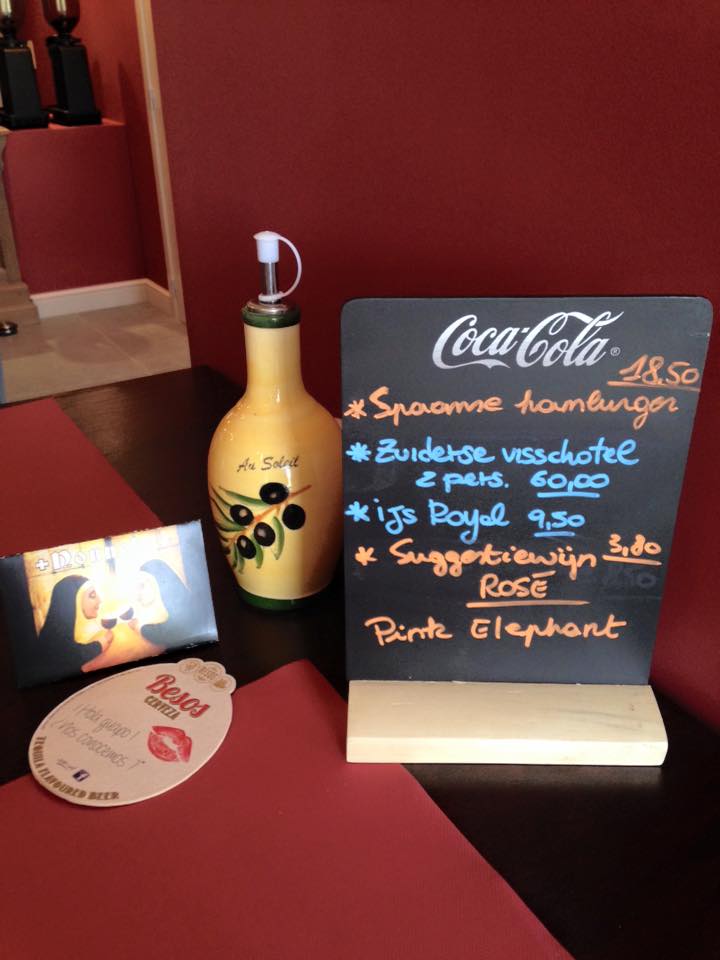 Coca-Cola
18,50
* Spaanse hamburger
* Zuiderse visschotel
2 pers. 60,00
* ijs Royal 9,50
* Suggestiewijn 3,80
ROSÉ
Pink Elephant
Au Soleil
Besos
CERVEZA
¡Hola guapo!
¿Nos conocemos?
TEQUILA FLAVOURED BEER